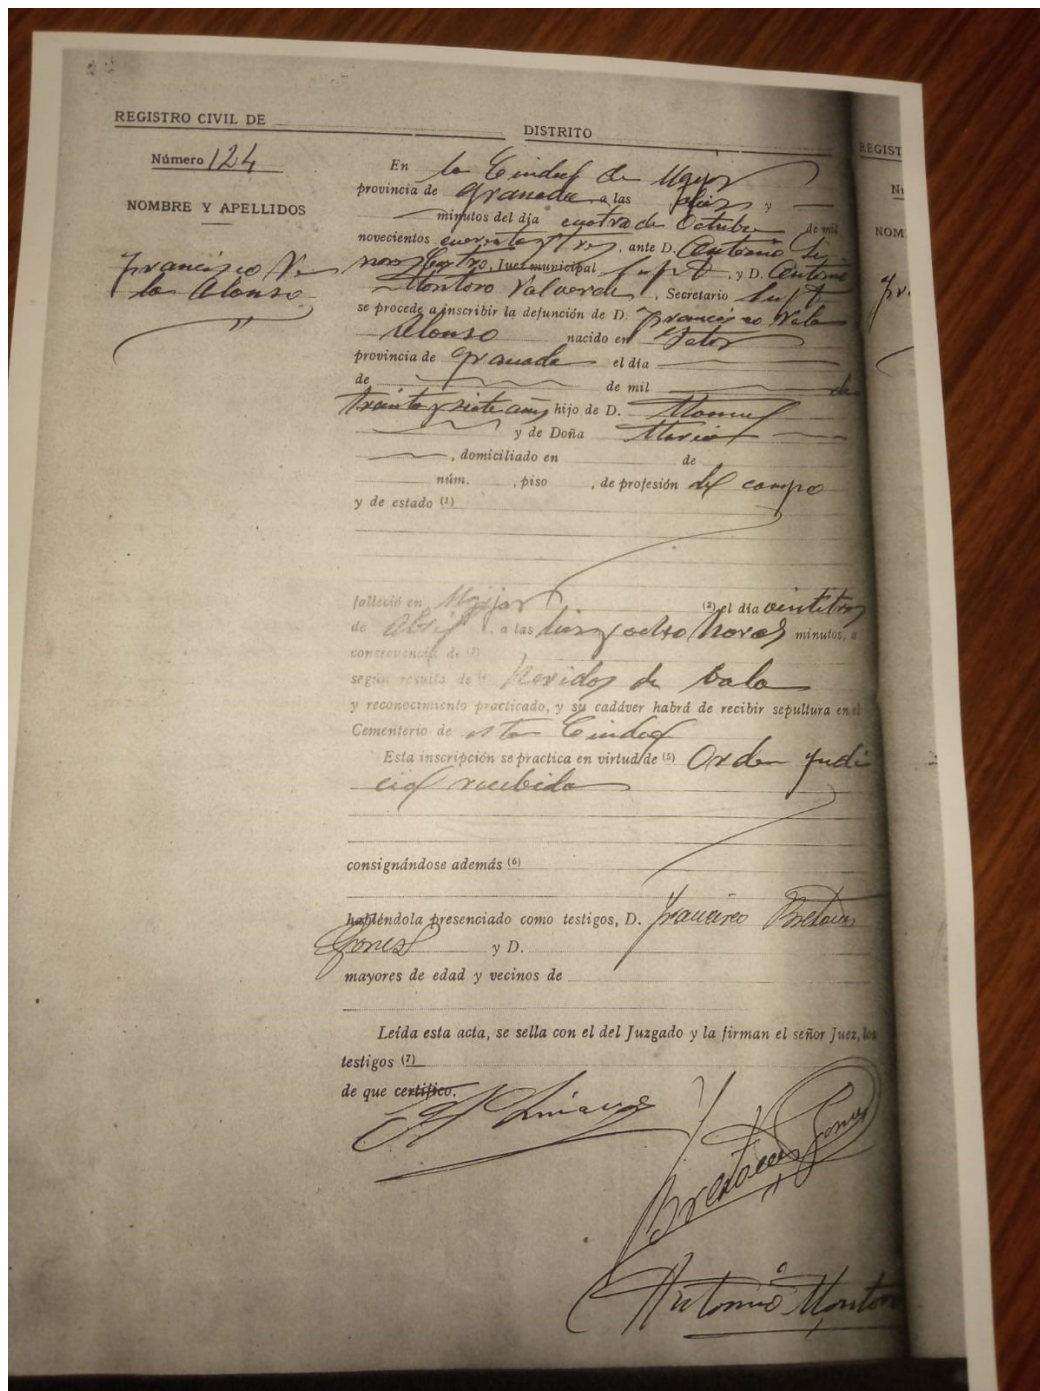 REGISTRO CIVIL DE
DISTRITO
REGIST
Número 124
NOMBRE Y APELLIDOS
Francisco Ve
la Alonso
En la Ciudad de Ugijar
provincia de Granada a las diez y
minutos del día cuatro de Octubre de mil
novecientos cuarenta y tres, ante D. Antonio
Juez municipal Supt, y D. Antonio
Montoro Valverde, Secretario Supt
se procede a inscribir la defunción de D. Francisco Vela
Alonso nacido en Jator
provincia de Granada el día
de de mil de
treinta y siete años hijo de D. Manuel
y de Doña Maria
, domiciliado en de
núm. , piso , de profesión del campo
y de estado (1)
falleció en Ugijar (2) el día veintitres
de Abril, a las diez y ocho horas minutos, a
consecuencia de (3)
según resulta de heridas de bala
y reconocimiento practicado, y su cadáver habrá de recibir sepultura en el
Cementerio de esta Ciudad
Esta inscripción se practica en virtud de (5) Orden judi
cial recibida
consignándose además (6)
habiéndola presenciado como testigos, D. Francisco
Gomez y D.
mayores de edad y vecinos de
Leída esta acta, se sella con el del Juzgado y la firman el señor Juez, los
testigos (7)
de que certifico.
Antonio Montoro
NOM